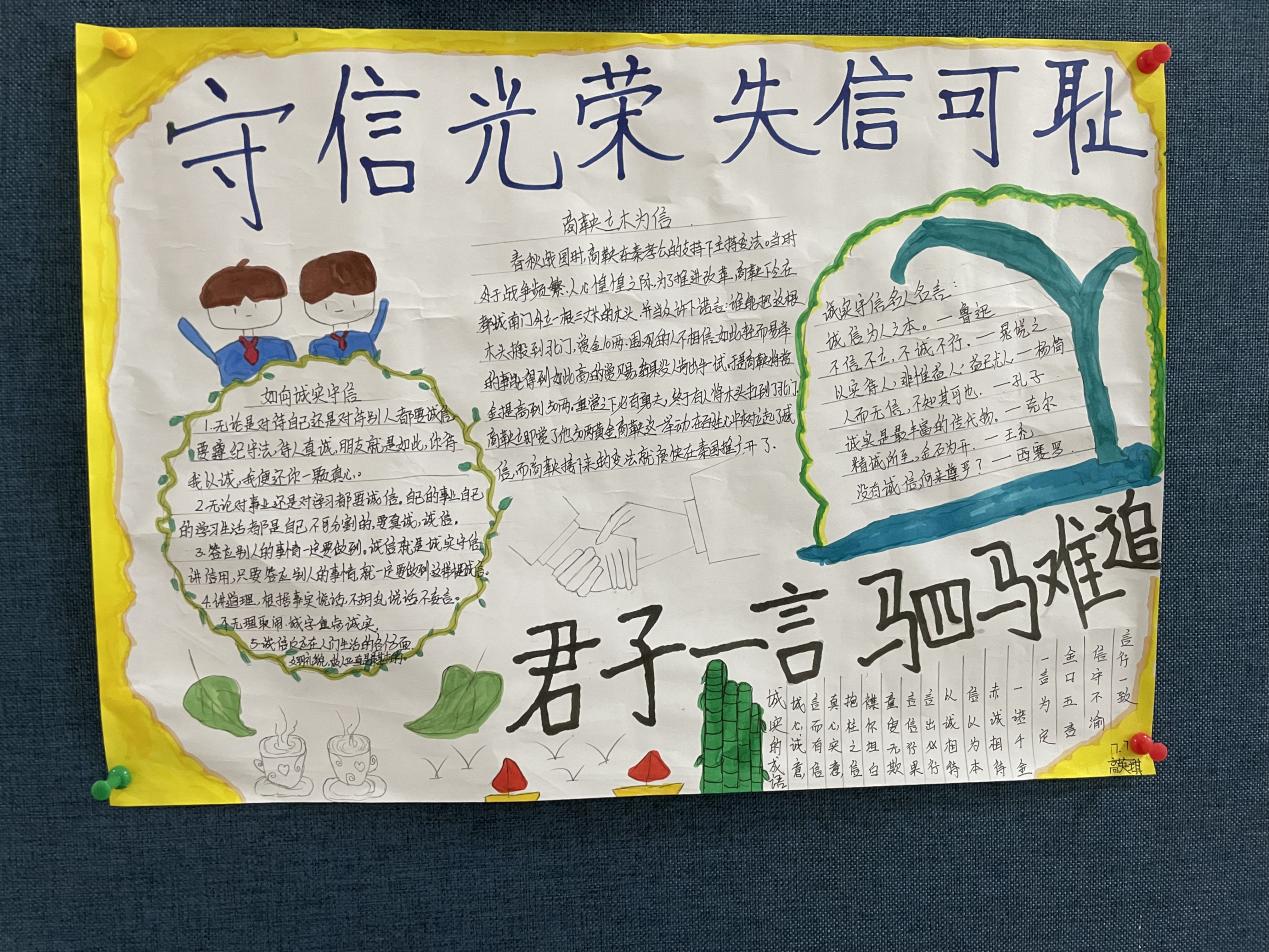 守信光荣 失信可耻
商鞅立木为信
春秋战国时,商鞅在秦孝公的支持下主持变法。当时
处于战争频繁、人心惶惶之际,为了推进改革,商鞅下令在
都城南门外立一根三丈长的木头,并当众许下诺言:谁能把这根
木头搬到北门,赏金10两。围观的人不相信如此轻而易举
的事能得到如此高的赏赐,结果没人肯出手一试。于是商鞅将赏
金提高到50两。重赏之下必有勇夫,终于有人将木头扛到了北门。
商鞅立即赏了他50两黄金。商鞅这一举动,在百姓心中树立起了威
信,而商鞅接下来的变法就很快在秦国推广开了。
诚实守信名人名言:
诚信为人之本。—鲁迅
不信不立,不诚不行。—晁说之
以实待人,非惟益人,益己尤人—杨简
人而无信,不知其可也。—孔子
诚实是最丰富的传代物。—克尔
精诚所至,金石为开。—王充
没有诚信,何来尊严?—西塞罗
如向诚实守信
1.无论是对待自己还是对待别人都要诚信,
要遵纪守法,待人真诚,朋友就是如此,你待
我以诚,我便还你一颗真心。
2.无论对事业还是对学习都要诚信。自己的事业,自己
的学习生活都是自己不可分割的,要真诚,诚信。
3.答应别人的事情一定要做到。诚信就是诚实守信
讲信用,只要答应别人的事情,就一定要做到这样
4.讲道理,根据事实说话,不胡乱说话,不妄言。
无理取闹
5.诚信
君子一言 驷马难追
言行一致
信守不渝
金口玉言
一言为定
一诺千金
赤诚相待
信以为本
以诚相待
言出必行
言信行果
童叟无欺
襟怀坦白
抱柱之信
真心实意
言而有信
诚心诚意
诚实的成语
高英琪